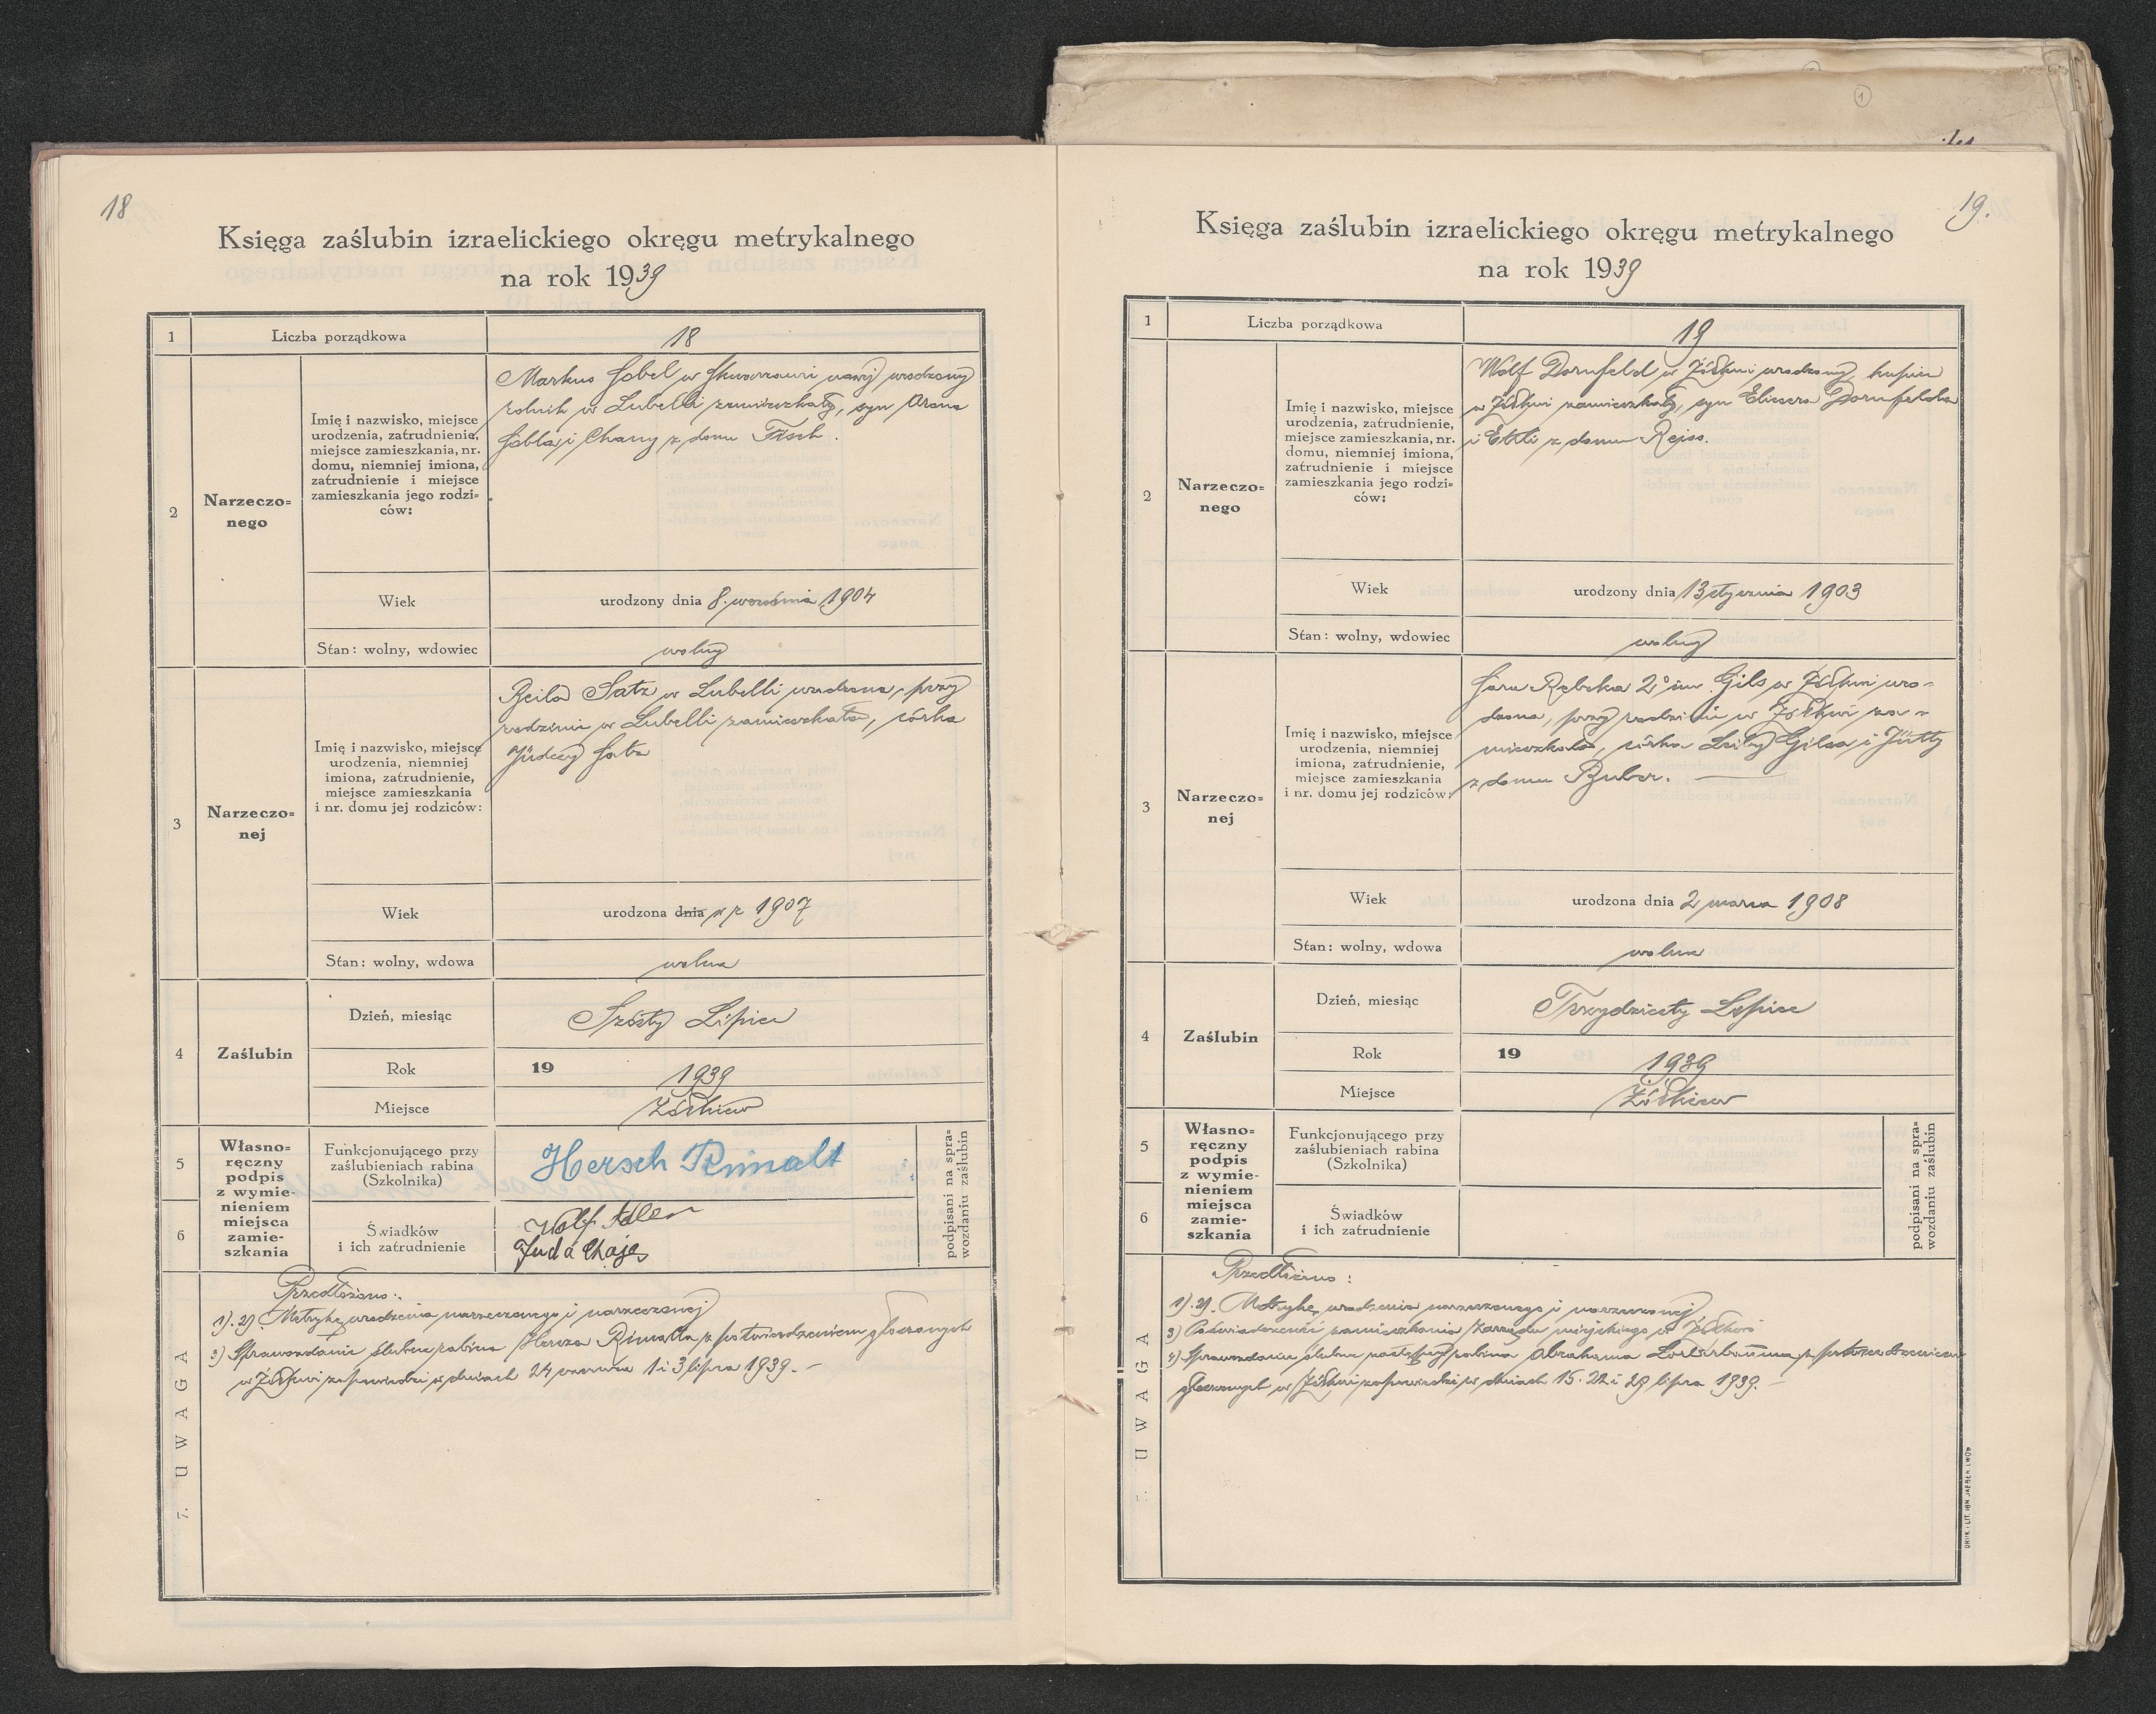 18
Księga zaślubin izraelickiego okręgu metrykalnego
na rok 1939
1
Liczba porządkowa
18
2
Narzeczo=
nego
Imię i nazwisko, miejsce
urodzenia, zatrudnienie,
miejsce zamieszkania, nr.
domu, niemniej imiona,
zatrudnienie i miejsce
zamieszkania jego rodzi=
ców:
Markus Sobel w Skwarzawi nowej urodzony
rolnik w Lubelli zamieszkały, syn Arona
Sobla i Chany z domu Fisch.
Wiek
urodzony dnia 8. września 1904
Stan: wolny, wdowiec
wolny
3
Narzeczo=
nej
Imię i nazwisko, miejsce
urodzenia, niemniej
imiona, zatrudnienie,
miejsce zamieszkania
i nr. domu jej rodziców:
Beila Satz w Lubelli urodzona, przy
rodzinie w Lubelli zamieszkała, córka
Satz
Wiek
urodzona dnia w r 1907
Stan: wolny, wdowa
wolna
4
Zaślubin
Dzień, miesiąc
Szósty Lipiec
Rok
19
1939
Miejsce
Żółkiew
5
6
Własno=
ręczny
podpis
z wymie=
nieniem
miejsca
zamie=
szkania
Funkcjonującego przy
zaślubieniach rabina
(Szkolnika)
Hersch Rimalt
Świadków
i ich zatrudnienie
Wolf Adler
Juda Chajes
podpisani na spra=
wozdaniu zaślubin
7. UWAGA
Przedłożono:
1). 2). Metrykę urodzenia narzeczonego i narzeczonej
3) Sprawozdanie ślubne rabina Hersza Rimalta z potwierdzeniem głoszonych
w Żółkwi zapowiedzi w dniach 24 czerwca 1 i 3 lipca 1939. –
19.
Księga zaślubin izraelickiego okręgu metrykalnego
na rok 1939
1
Liczba porządkowa
19
2
Narzeczo=
nego
Imię i nazwisko, miejsce
urodzenia, zatrudnienie,
miejsce zamieszkania, nr.
domu, niemniej imiona,
zatrudnienie i miejsce
zamieszkania jego rodzi=
ców:
Wolf Dornfeld w Żółkwi urodzony, kupiec
w Żółkwi zamieszkały, syn Eliezera Dornfelda
i Ettli z domu Reiss.
Wiek
urodzony dnia 13 stycznia 1903
Stan: wolny, wdowiec
wolny
3
Narzeczo=
nej
Imię i nazwisko, miejsce
urodzenia, niemniej
imiona, zatrudnienie,
miejsce zamieszkania
i nr. domu jej rodziców:
Sara Rebeka 2º im. Gils w Żółkwi uro-
dzona, przy rodzinie w Żółkwi za-
mieszkała, córka Gilsa i Jütty
z domu Buber.
Wiek
urodzona dnia 2 marca 1908
Stan: wolny, wdowa
wolna
4
Zaślubin
Dzień, miesiąc
Trzydziesty Lipiec
Rok
19
1939
Miejsce
Żółkiew
5
6
Własno=
ręczny
podpis
z wymie=
nieniem
miejsca
zamie=
szkania
Funkcjonującego przy
zaślubieniach rabina
(Szkolnika)
Świadków
i ich zatrudnienie
podpisani na spra=
wozdaniu zaślubin
7. UWAGA
Przedłożono:
1). 2). Metrykę urodzenia narzeczonego i narzeczonej
3) Poświadczenie zamieszkania Zarządu miejskiego w Żółkwi
4) Sprawozdanie ślubne rabina Abrahama z potwierdzeniem
głoszonych w Żółkwi zapowiedzi w dniach 15. 22 i 29 lipca 1939. –
DRUK. I LIT. IGN. JAEGER, LWÓW
1